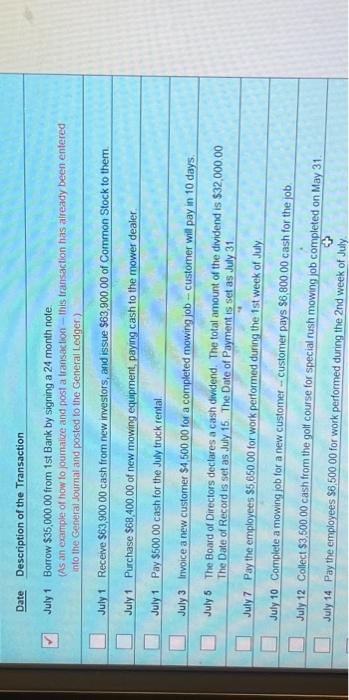 Date Description of the Transaction
July 1 Borrow $35,000.00 from 1st Bank by signing a 24 month note.
(As an example of how to journalize and post a transaction -- this transaction has already been entered
into the General Journal and posted to the General Ledger.)
July 1 Receive $63,900.00 cash from new investors, and issue $63,900.00 of Common Stock to them.
July 1 Purchase $68,400.00 of new mowing equipment, paying cash to the mower dealer.
July 1 Pay $500.00 cash for the July truck rental.
July 3 Invoice a new customer $4,500.00 for a completed mowing job -- customer will pay in 10 days.
July 5 The Board of Directors declares a cash dividend. The total amount of the dividend is $32,000.00
The Date of Record is set as July 15. The Date of Payment is set as July 31.
July 7 Pay the employees $5,650.00 for work performed during the 1st week of July.
July 10 Complete a mowing job for a new customer -- customer pays $6,800.00 cash for the job.
July 12 Collect $3,500.00 cash from the golf course for special rush mowing job completed on May 31.
July 14 Pay the employees $6,500.00 for work performed during the 2nd week of July.